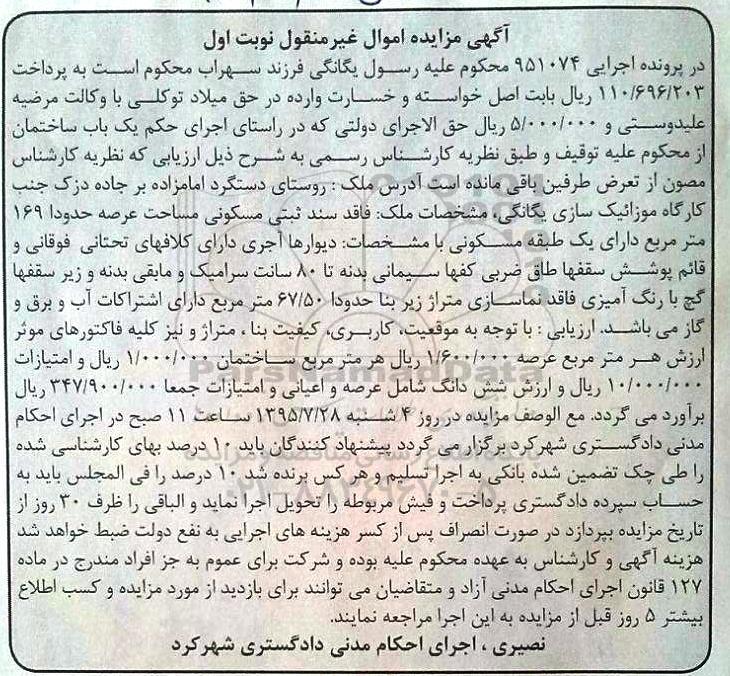 آگهی مزایده اموال غیرمنقول نوبت اول
در پرونده اجرایی ۹۵۱۰۷۴ محکوم علیه رسول یگانگی فرزند سهراب محکوم است به پرداخت
۱۱۰/۶۹۶/۲۰۳ ریال بابت اصل خواسته و خسارت وارده در حق میلاد توکلی با وکالت مرضیه
علیدوستی و ۵/۰۰۰/۰۰۰ ریال حق الاجرای دولتی که در راستای اجرای حکم یک باب ساختمان
از محکوم علیه توقیف و طبق نظریه کارشناس رسمی به شرح ذیل ارزیابی که نظریه کارشناس
مصون از تعرض طرفین باقی مانده است آدرس ملک : روستای دستگرد امامزاده بر جاده دزک جنب
کارگاه موزائیک سازی یگانگی، مشخصات ملک: فاقد سند ثبتی مسکونی مساحت عرصه حدودا ۱۶۹
متر مربع دارای یک طبقه مسکونی با مشخصات: دیوارها آجری دارای کلافهای تحتانی فوقانی و
قائم پوشش سقفها طاق ضربی کفها سیمانی بدنه تا ۸۰ سانت سرامیک و مابقی بدنه و زیر سقفها
گچ با رنگ آمیزی فاقد نماسازی متراژ زیر بنا حدودا ۶۷/۵۰ متر مربع دارای اشتراکات آب و برق و
گاز می باشد. ارزیابی : با توجه به موقعیت، کاربری، کیفیت بنا ، متراژ و نیز کلیه فاکتورهای موثر
ارزش هر متر مربع عرصه ۱/۶۰۰/۰۰۰ ریال هر متر مربع ساختمان ۱/۰۰۰/۰۰۰ ریال و امتیازات
۱۰/۰۰۰/۰۰۰ ریال و ارزش شش دانگ شامل عرصه و اعیانی و امتیازات جمعا ۳۴۷/۹۰۰/۰۰۰ ریال
برآورد می گردد. مع الوصف مزایده در روز ۴ شنبه ۱۳۹۵/۷/۲۸ ساعت ۱۱ صبح در اجرای احکام
مدنی دادگستری شهرکرد برگزار می گردد پیشنهاد کنندگان باید ۱۰ درصد بهای کارشناسی شده
را طی چک تضمین شده بانکی به اجرا تسلیم و هر کس برنده شد ۱۰ درصد را فی المجلس باید به
حساب سپرده دادگستری پرداخت و فیش مربوطه را تحویل اجرا نماید و الباقی را ظرف ۳۰ روز از
تاریخ مزایده بپردازد در صورت انصراف پس از کسر هزینه های اجرایی به نفع دولت ضبط خواهد شد
هزینه آگهی و کارشناس به عهده محکوم علیه بوده و شرکت برای عموم به جز افراد مندرج در ماده
۱۲۷ قانون اجرای احکام مدنی آزاد و متقاضیان می توانند برای بازدید از مورد مزایده و کسب اطلاع
بیشتر ۵ روز قبل از مزایده به این اجرا مراجعه نمایند.
نصیری ، اجرای احکام مدنی دادگستری شهرکرد
ParsNamadData